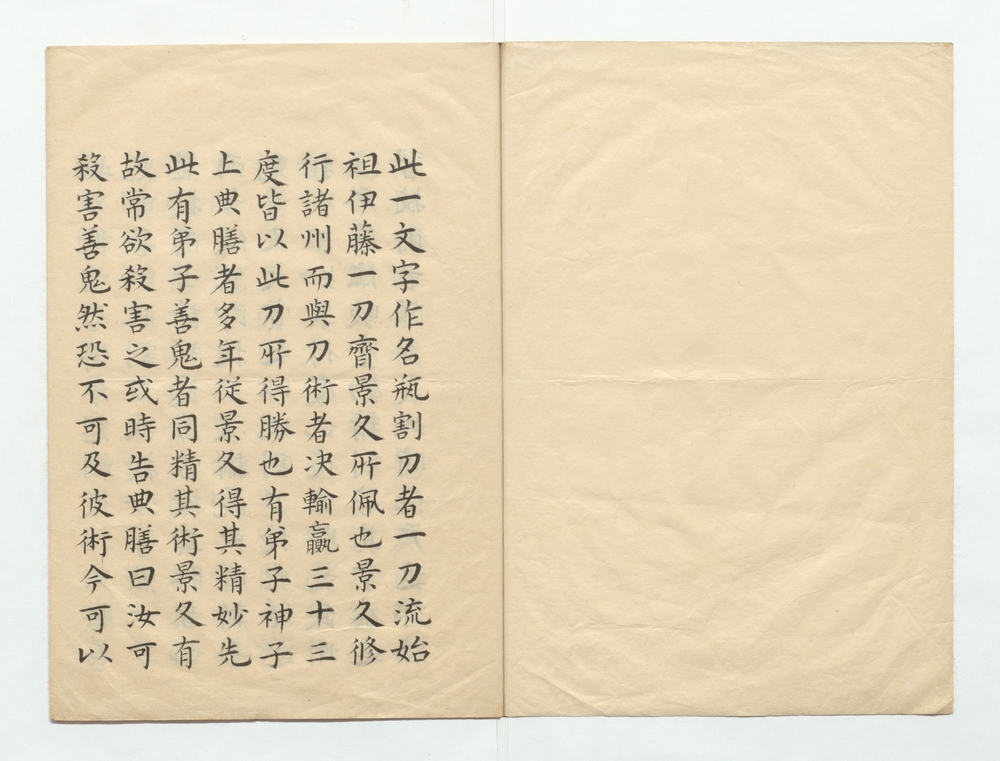 此一文字作名瓶割刀者一刀流始
祖伊藤一刀齊景久所佩也景久修
行諸州而與刀術者决輸贏三十三
度皆以此刀所得勝也有弟子神子
上典膳者多年従景久得其精妙先
此有弟子善鬼者同精其術景久有
故常欲殺害之或時告典膳曰汝可
殺害善鬼然恐不可及彼術今可以